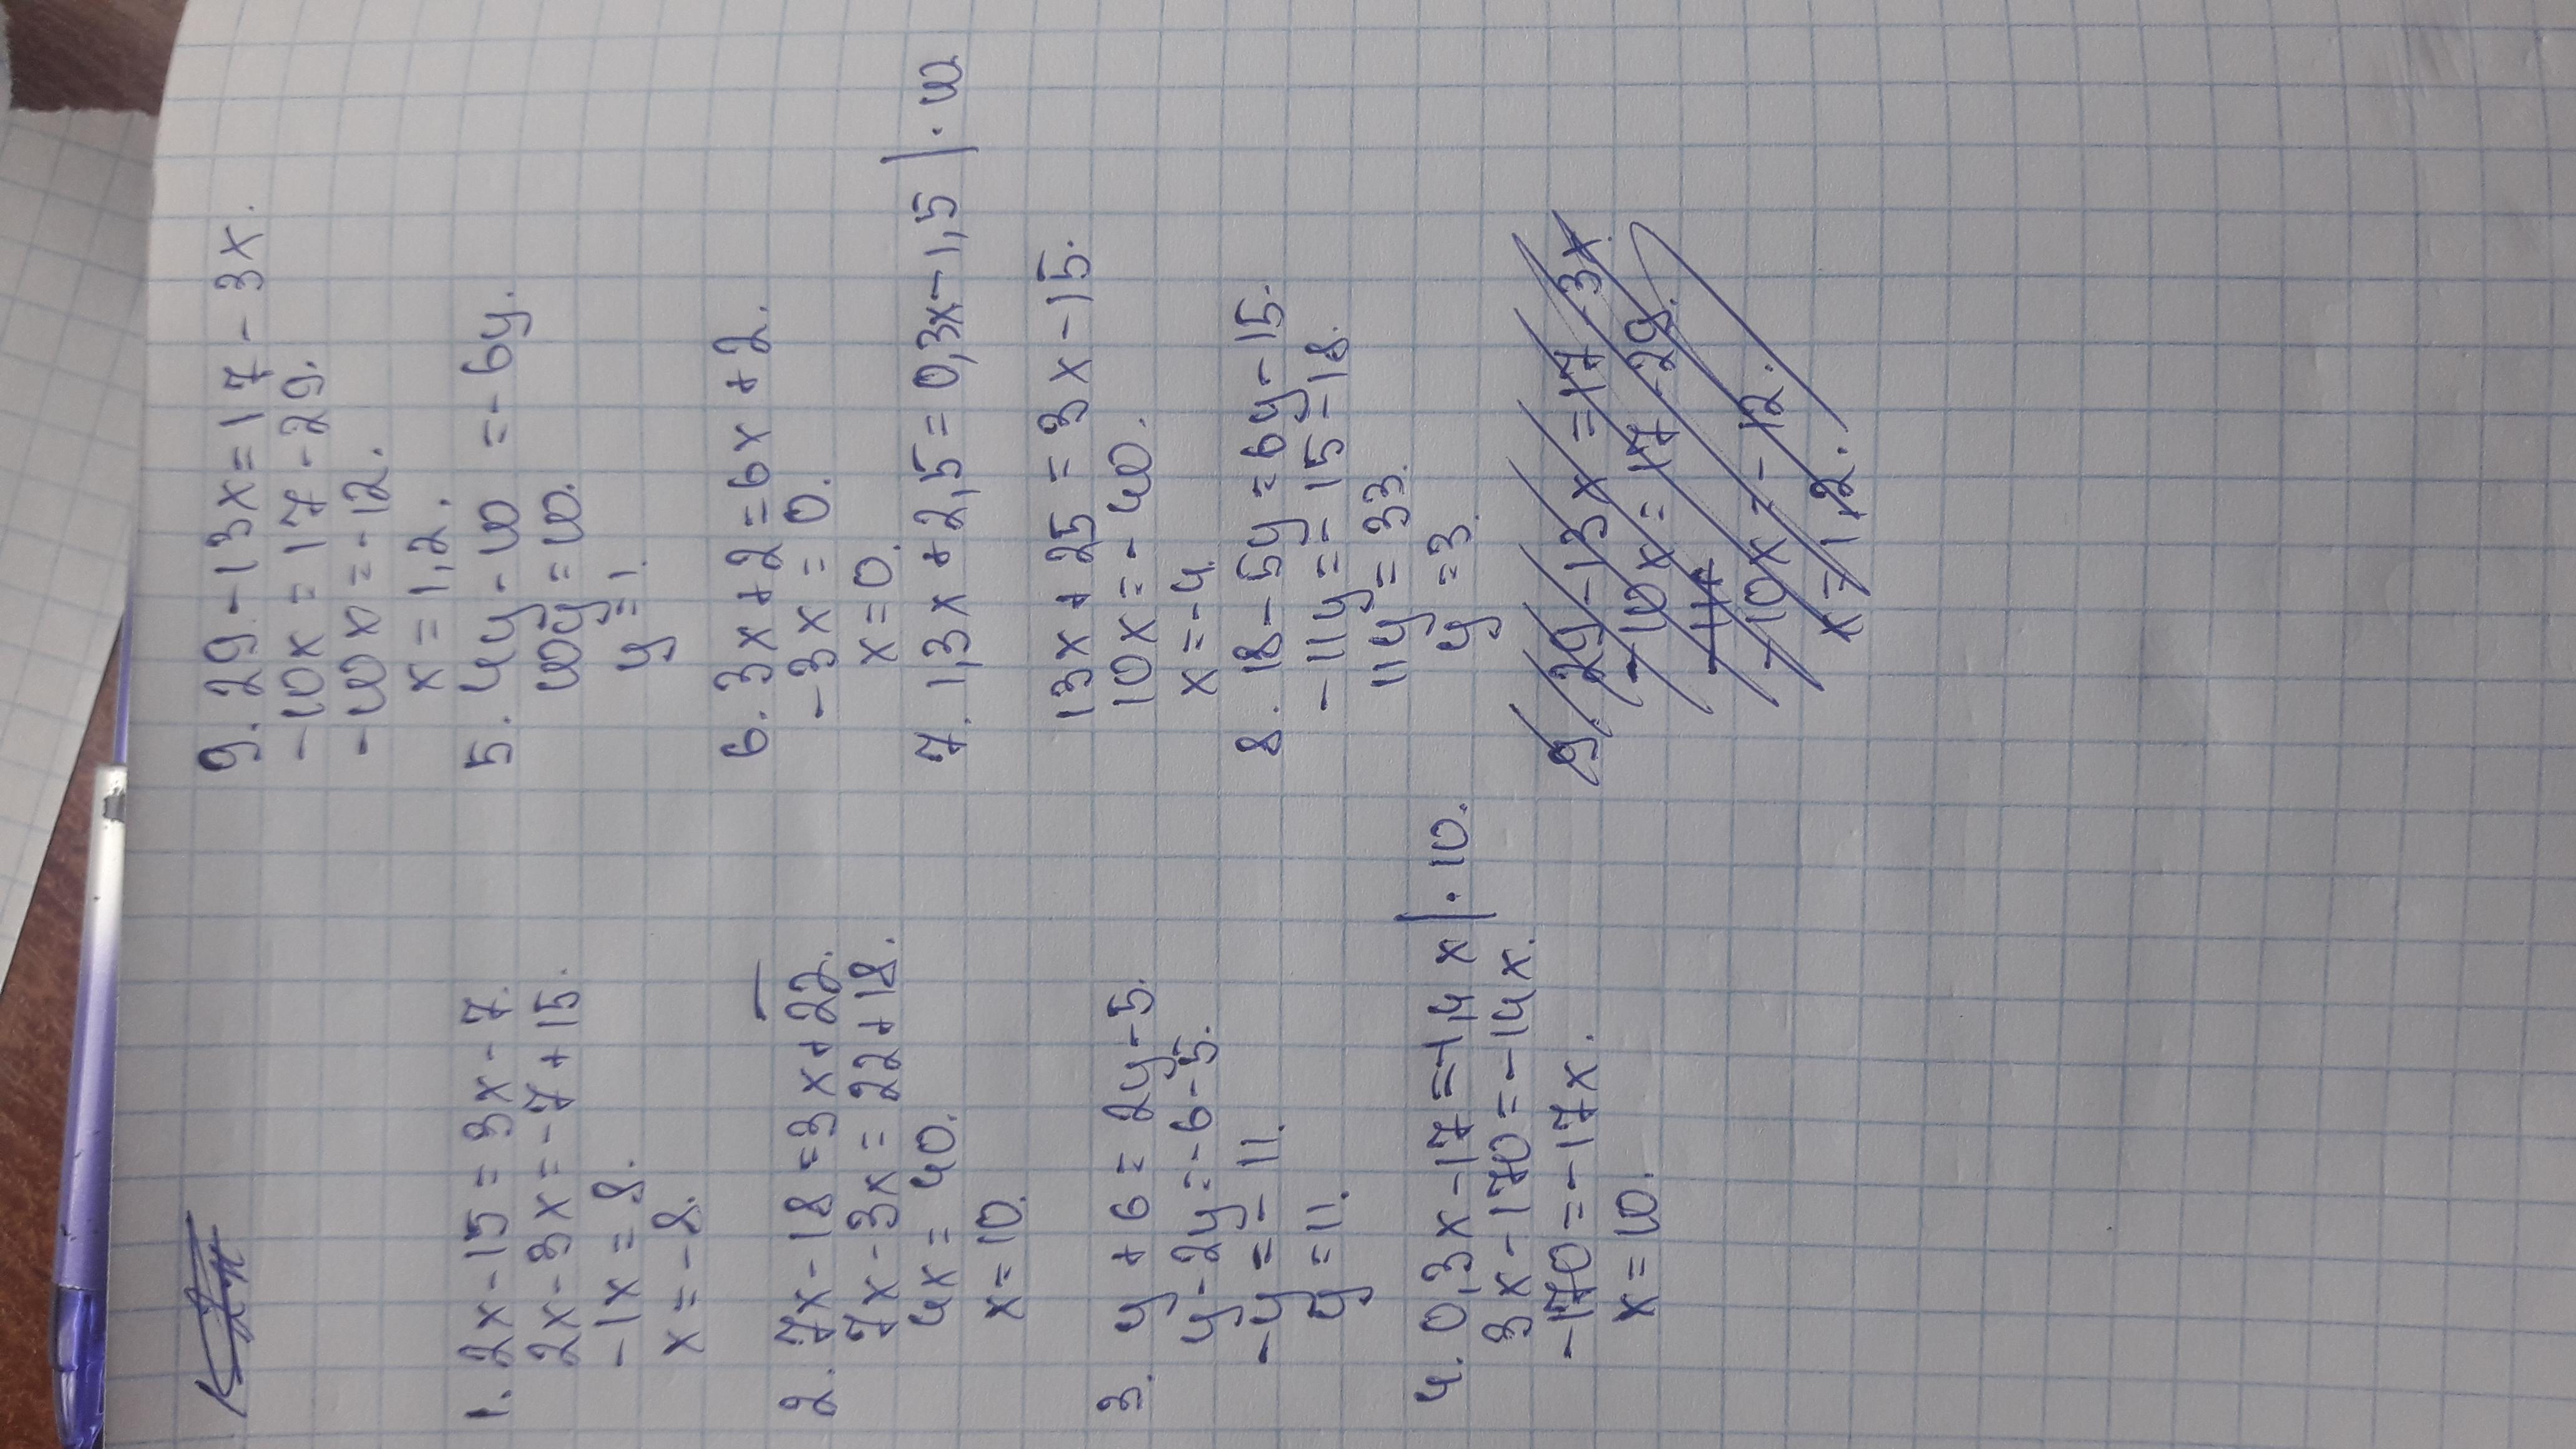 1. 2x-15=3x-7.
2x-3x=-7+15.
-1x=8.
x=-8.
2. 7x-18=3x+22.
7x-3x=22+18.
4x=40.
x=10.
3. y+6=2y-5.
y-2y=-6-5.
-y=-11.
y=11.
4. 0,3x-17=-1,4x|·10.
3x-170=-14x.
-170=-17x.
x=10.
9. 29-13x=17-3x.
-10x=17-29.
-10x=-12.
x=1,2.
5. 4y-10=-6y.
10y=10.
y=1.
6. 3x+2=6x+2.
-3x=0.
x=0.
7. 1,3x+2,5=0,3x-1,5|·10
13x+25=3x-15.
10x=-40.
x=-4.
8. 18-5y=6y-15.
-11y=-15-18.
11y=33.
y=3.
9. 29-13x=17-3x.
-10x=17-29.
-10x=-12.
x=1,2.